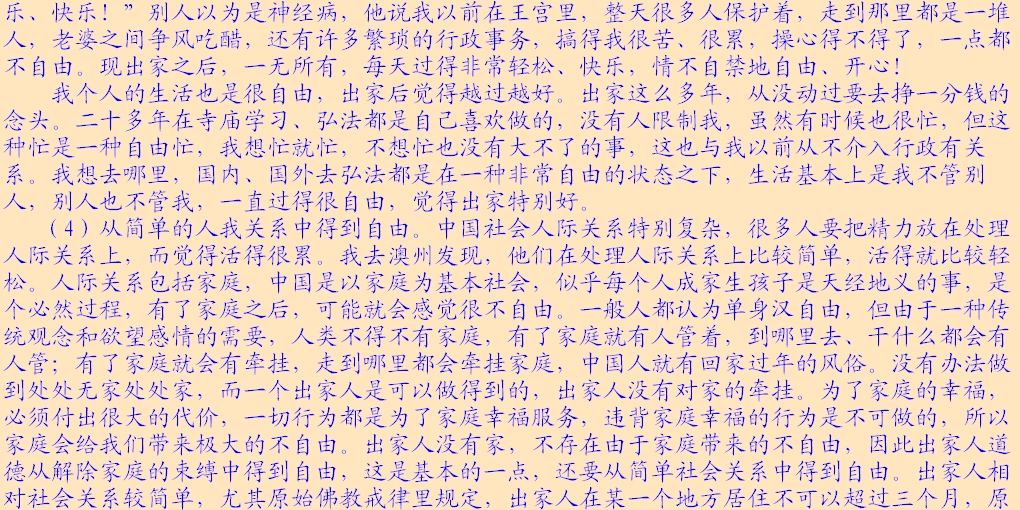 乐、快乐！”别人以为是神经病，他说我以前在王宫里，整天很多人保护着，走到那里都是一堆
人，老婆之间争风吃醋，还有许多繁琐的行政事务，搞得我很苦、很累，操心得不得了，一点都
不自由。现出家之后，一无所有，每天过得非常轻松、快乐，情不自禁地自由、开心！
我个人的生活也是很自由，出家后觉得越过越好。出家这么多年，从没动过要去挣一分钱的
念头。二十多年在寺庙学习、弘法都是自己喜欢做的，没有人限制我，虽然有时候也很忙，但这
种忙是一种自由忙，我想忙就忙，不想忙也没有大不了的事，这也与我以前从不介入行政有关
系。我想去哪里，国内、国外去弘法都是在一种非常自由的状态之下，生活基本上是我不管别
人，别人也不管我，一直过得很自由，觉得出家特别好。
（4）从简单的人我关系中得到自由。中国社会人际关系特别复杂，很多人要把精力放在处理
人际关系上，而觉得活得很累。我去澳州发现，他们在处理人际关系上比较简单，活得就比较轻
松。人际关系包括家庭，中国是以家庭为基本社会，似乎每个人成家生孩子是天经地义的事，是
个必然过程，有了家庭之后，可能就会感觉很不自由。一般人都认为单身汉自由，但由于一种传
统观念和欲望感情的需要，人类不得不有家庭，有了家庭就有人管着，到哪里去、干什么都会有
人管；有了家庭就会有牵挂，走到哪里都会牵挂家庭，中国人就有回家过年的风俗。没有办法做
到处处无家处处家，而一个出家人是可以做得到的，出家人没有对家的牵挂。为了家庭的幸福，
必须付出很大的代价，一切行为都是为了家庭幸福服务，违背家庭幸福的行为是不可做的，所以
家庭会给我们带来极大的不自由。出家人没有家，不存在由于家庭带来的不自由，因此出家人道
德从解除家庭的束缚中得到自由，这是基本的一点，还要从简单社会关系中得到自由。出家人相
对社会关系较简单，尤其原始佛教戒律里规定，出家人在某一个地方居住不可以超过三个月，原